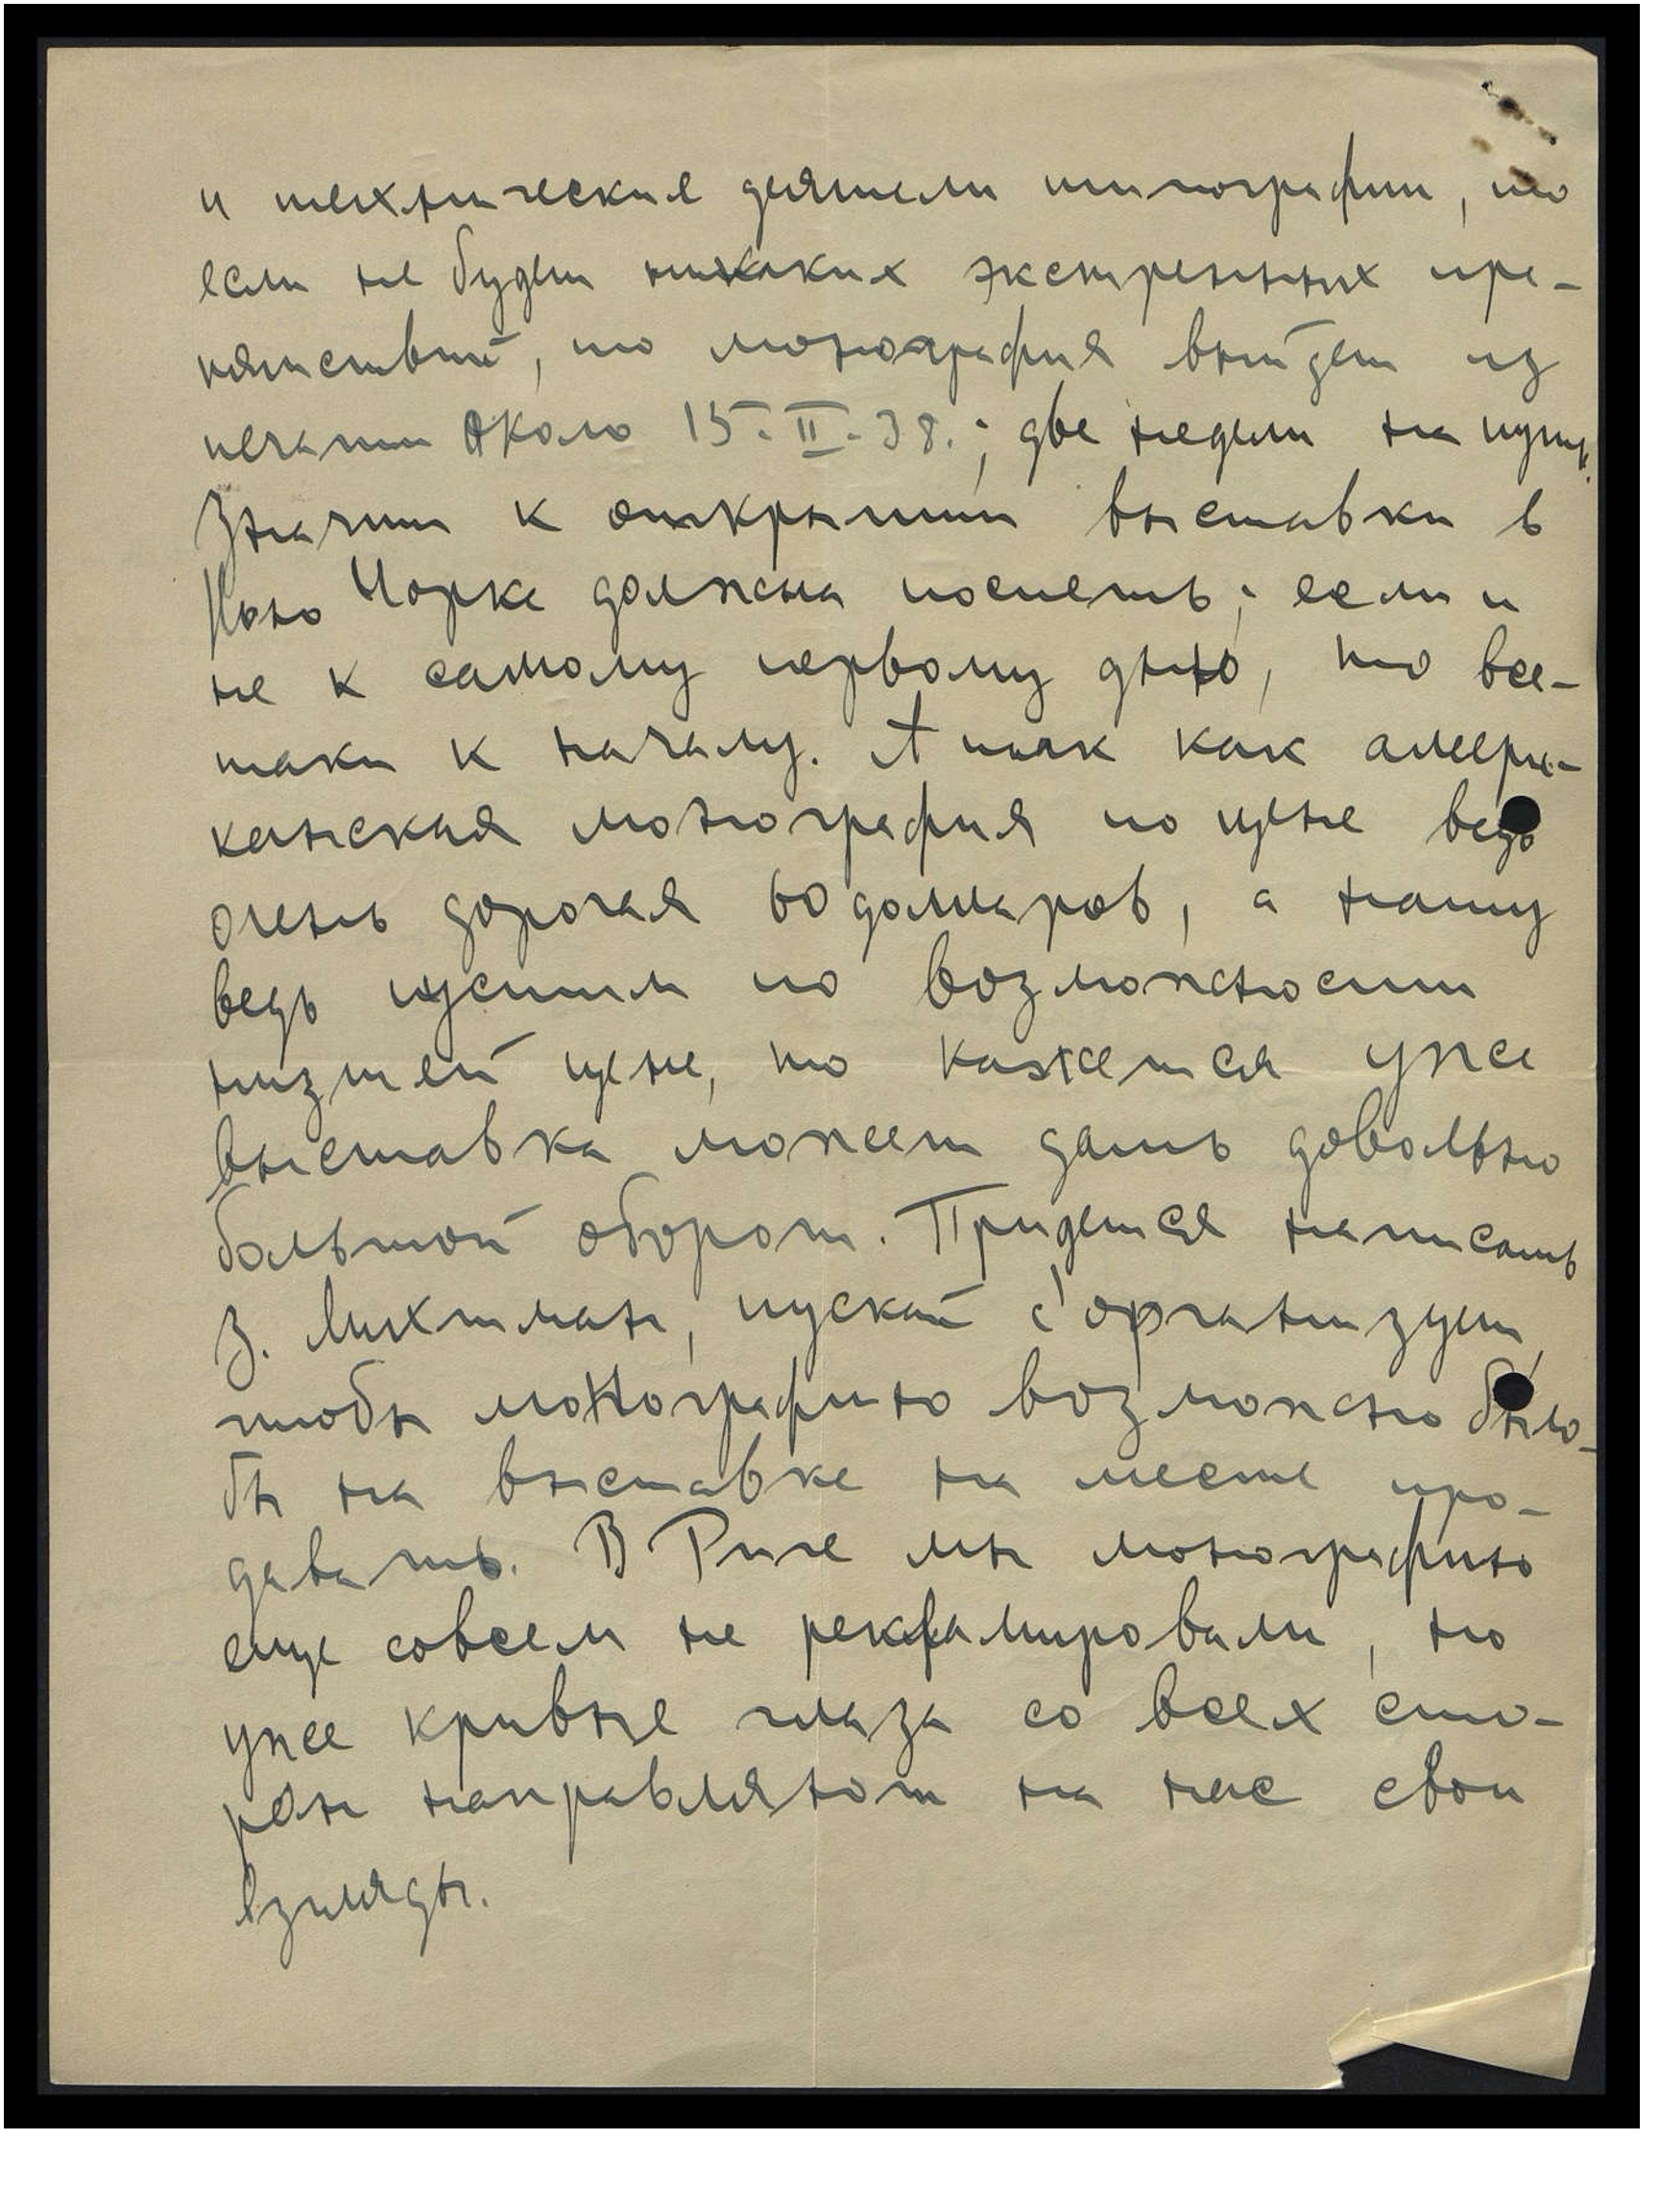 и технические деятели типографии, то
если не будет никаких экстренных пре-
пятствий, то монография выйдет из
печати около 15.II.38.; две недели на путь.
Значит к открытии выставки в
Нью Йорке должна поспеть; если и
не к самому первому дню, то все-
таки к началу. А так как амери-
канская монография по цене ведь
очень дорогая 60 долларов, а нашу
ведь пустим по возможности
низшей цене, то кажется уже
выставка может дать довольно
большой оборот. Придется написать
З. Лихтман, пускай с'организует,
чтобы монографию возможно было-
бы на выставке на месте про-
давать. В Риге мы монографию
еще совсем не рекламировали, но
уже кривые глаза со всех сто-
рон направляют на нас свои
взгляды.